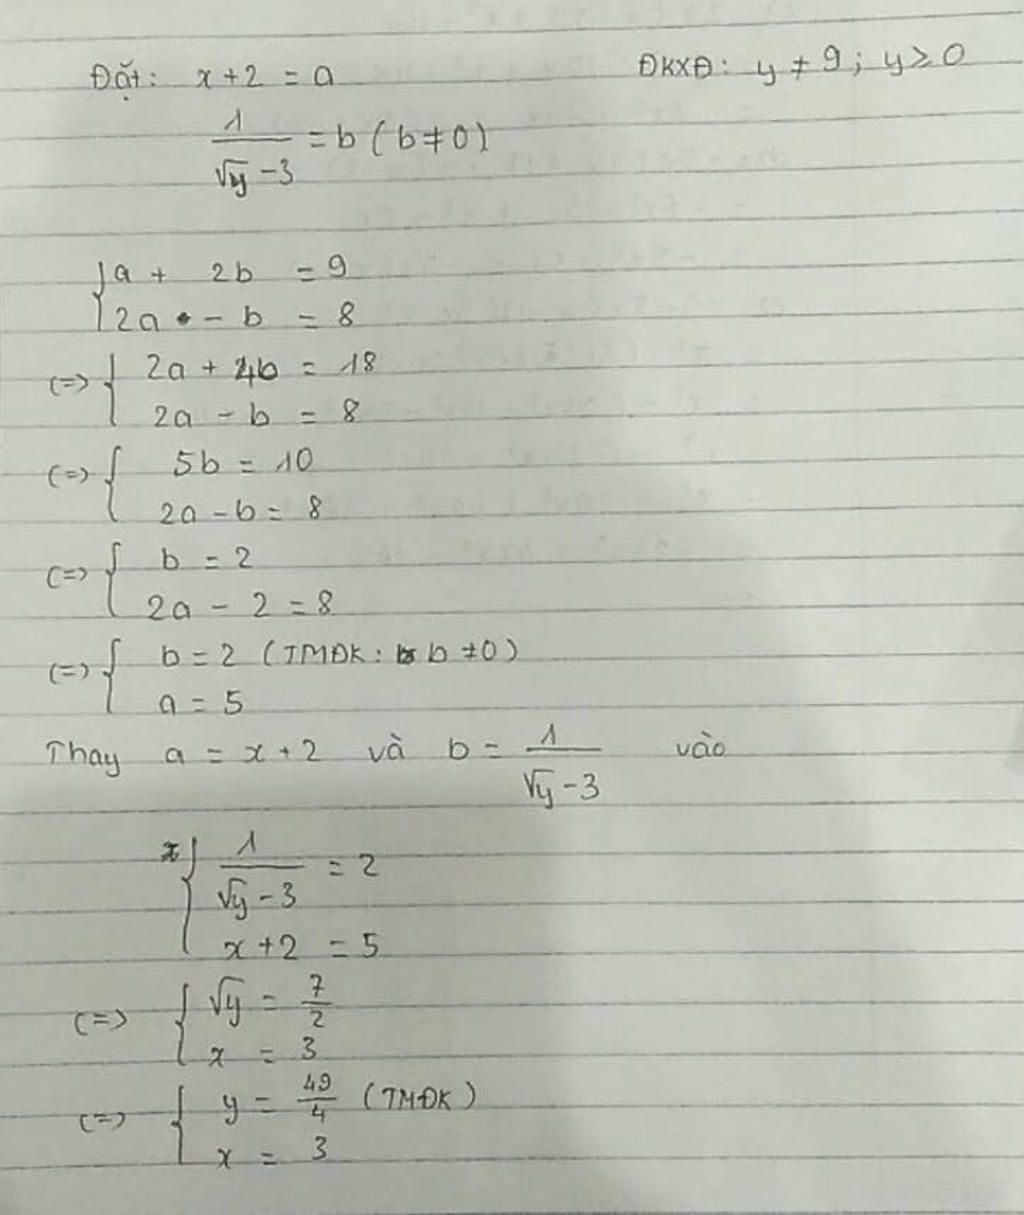 Đặt: x + 2 = a ĐKXĐ: y ≠ 9; y ≥ 0
1/(√y - 3) = b (b ≠ 0)
{ a + 2b = 9
2a - b = 8
(=> { 2a + 4b = 18
2a - b = 8
(=> { 5b = 10
2a - b = 8
(=> { b = 2
2a - 2 = 8
(=> { b = 2 (TMĐK: b ≠ 0)
a = 5
Thay a = x + 2 và b = 1/(√y - 3) vào
{ 1/(√y - 3) = 2
x + 2 = 5
(=> { √y = 7/2
x = 3
(=> { y = 49/4 (TMĐK)
x = 3